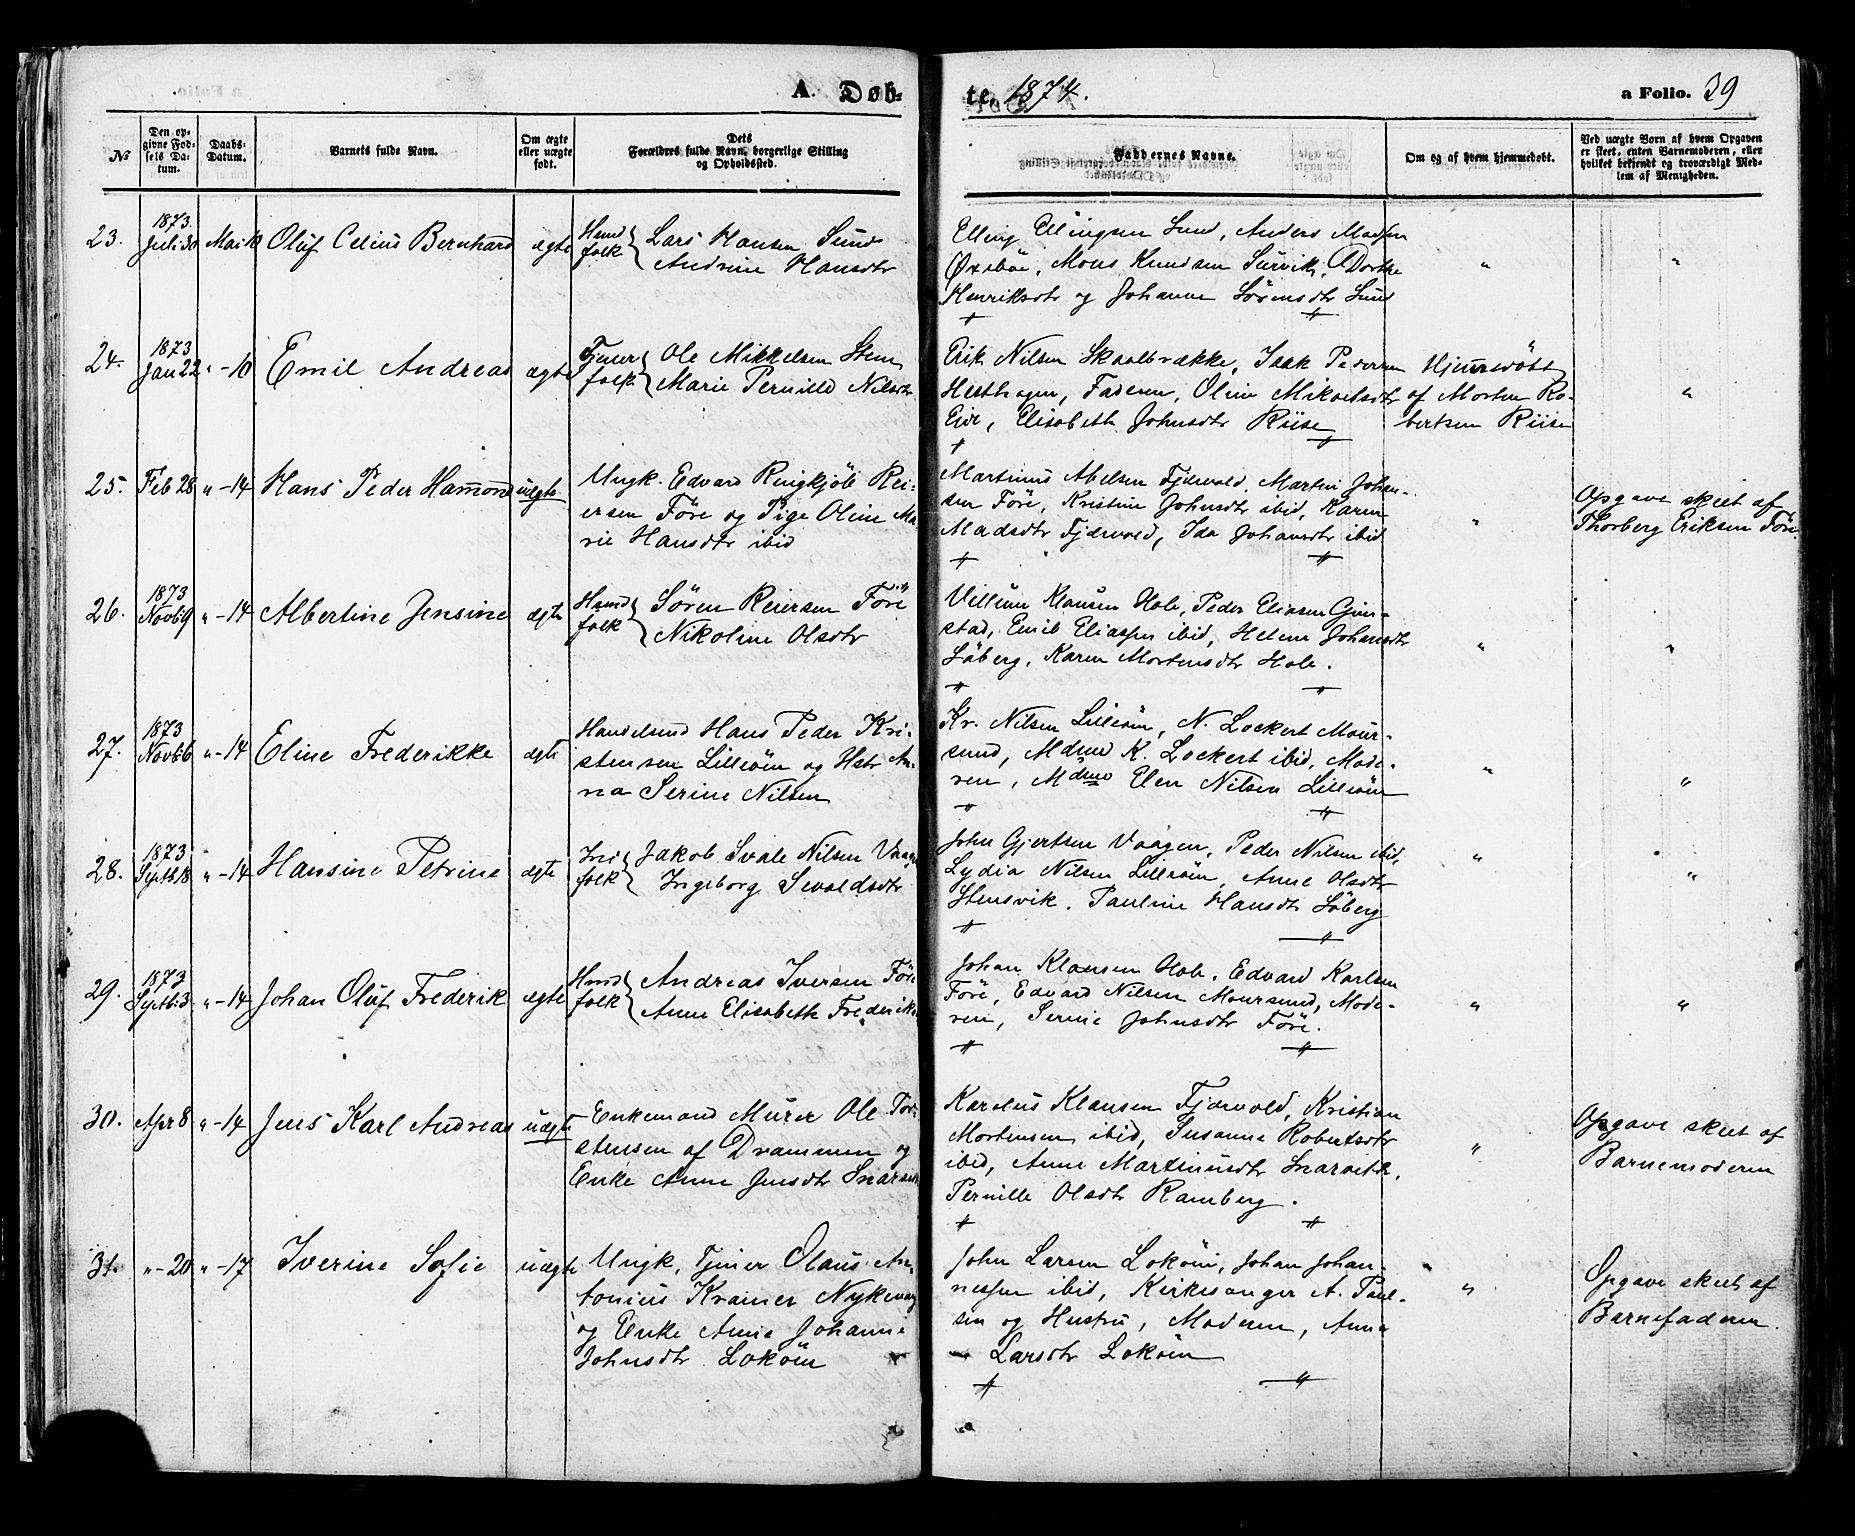 A. Döb-
te, 1874.
a Folio. 39
№
Den op-
givne Fød-
sels Da-
tum.
Daabs-
Datum.
Barnets fulde Navn.
Om ægte
eller uægte
født.
Dets
Forældres fulde Navn, borgerlige Stilling
og Opholdssted.
Faddernes Navne.
Om og af hvem hjemmedøbt.
Ved uægte Born af hvem Opgaven
er skeet, enten Barnemoderen, eller
hvilket bekjendt og troværdigt Med-
lem af Menigheden.
23.
1873
Juli 30
Mai 10
Oluf Celius Bernhard
ægte
Husmd
folk
Lars Hansen Sund
Andrine Hansdtr
Elling Ellingsen Sund, Anders Madsen
Øxebøe, Mons Knudsen Survik, Dorthe
Henriksdtr og Johanne Sörensdtr Sund
"
"
24.
1873
Jan 22
" - 10
Emil Andreas
ægte
Tjener
folk
Ole Mikkelsen Steen
Marie Pernille Nilsdtr
Erik Nilsen Skaalbrække, Isak Pedersen
Hesthagen, Faderen, Oline Mikaelsdtr
Eide, Elisabeth Johnsdtr Riise
Hjemmedöbt
af Morten Ro-
bertsen Riise
"
25.
Feb 28
" - 14
Hans Peder Hamond
uægte
Ungk. Edvard Ringkjöb Rei-
ersen Före og Pige Oline Ma-
rie Hansdtr ibid
Martinus Abelsen Fjærvold, Martin Johan-
sen Före, Kristine Johnsdtr ibid, Karen
Madsdtr Fjærvold, Ida Johansdtr ibid
"
Opgave skeet af
Thorberg Eriksen Före.
26.
1873
Novb 9
" - 14
Albertine Jensine
ægte
Husmd
folk
Sören Reiersen Före
Nikoline Olsdtr
Villum Klausen Hole, Peder Eliasen Gim-
stad, Emil Eliassen ibid, Helene Johansdtr
Söberg, Karen Mortensdtr Hole.
"
"
27.
1873
Novb 6
" - 14
Eline Frederikke
ægte
Handelsmd Hans Peder Kri-
stensen Lilleöen og Hstr An-
na Serine Nilsen
Kr. Nilsen Lilleöen, N. Lockert Mour-
sund, Mdme K. Lockert ibid, Mode-
ren, Mdme Elen Nilsen Lilleöen
"
"
28.
1873
Septb 18
" - 14
Hansine Petrine
ægte
Ind
folk
Jakob Svale Nilsen Vaage
Ingeborg Sevaldsdtr
John Gjertsen Vaagen, Peder Nilsen ibid,
Lydia Nilsen Lilleöen, Anne Olsdtr
Stensvik, Pauline Hansdtr Söberg
"
"
29.
1873
Septb 3
" - 14
Johan Oluf Frederik
ægte
Husmd
folk
Andreas Iversen Före
Anne Elisabeth Frederiks
Johan Klausen Hole, Edvard Karlsen
Före, Edvard Nilsen Moursund, Mode-
ren, Serine Johnsdtr Före.
"
"
30.
Apr 8
" - 14
Jens Karl Andreas
uægte
Enkemand Murer Ole Tor-
stensen af Drammen og
Enke Anne Jensdtr Snarset
Karelius Klausen Fjærvold, Kristian
Mortensen ibid, Susanne Robertsdtr
ibid, Anne Martinusdtr Snarseth,
Pernille Olsdtr Ramberg.
"
Opgave skeet af
Barnemoderen
31.
" - 20
" - 17
Iverine Sofie
uægte
Ungk, Tjener Olaus An-
tonius Kramer Nykvaag
og Enke Anne Johanne
Johnsdtr Loköen
John Larsen Loköen, Johan Johan-
nessen ibid, Kirkesanger A. Paul-
sen og Hustru, Moderen, Anne
Larsdtr Loköen
"
Opgave skeet af
Barnefaderen.